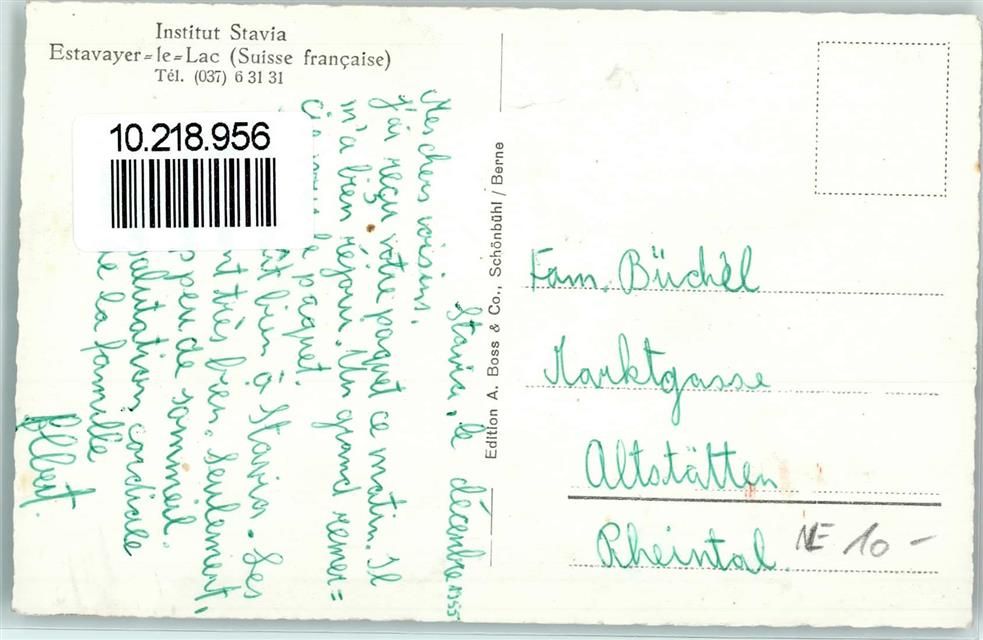 Institut Stavia
Estavayer-le-Lac (Suisse française)
Tél. (037) 6 31 31
10.218.956
Stavia, le décembre 1955
Mes chers voisins,
J'ai reçu votre paquet ce matin. Il
m'a bien réjoui. Un grand remer=
paquet.
bien à Stavia. Les
très bien. Seulement,
peu de sommeil.
salutation cordiale
de la famille
Albert.
Edition A. Boss & Co., Schönbühl / Berne
Fam. Büchel
Marktgasse
Altstätten
Rheintal.
NE 10 -